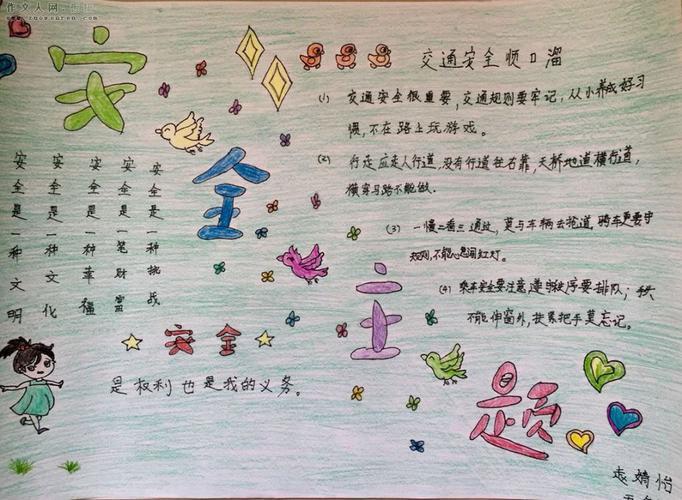 作文人网
www.zuowenren.com
安全主题
安全是一种文明
安全是一种文化
安全是一种幸福
安全是一笔财富
安全是一种挑战
安全
是权利也是我的义务。
交通安全顺口溜
(1) 交通安全很重要,交通规则要牢记,从小养成好习
惯,不在路上玩游戏。
(2) 行走应走人行道,没有行道往右靠,天桥地道横行道,
横穿马路不能做。
(3) 一慢二看三通过,莫与车辆去抢道,骑车更要守
规则,不能心急闯红灯。
(4) 乘车安全要注意遵守秩序要排队;
不能伸窗外,扶紧把手莫忘记。
婧怡